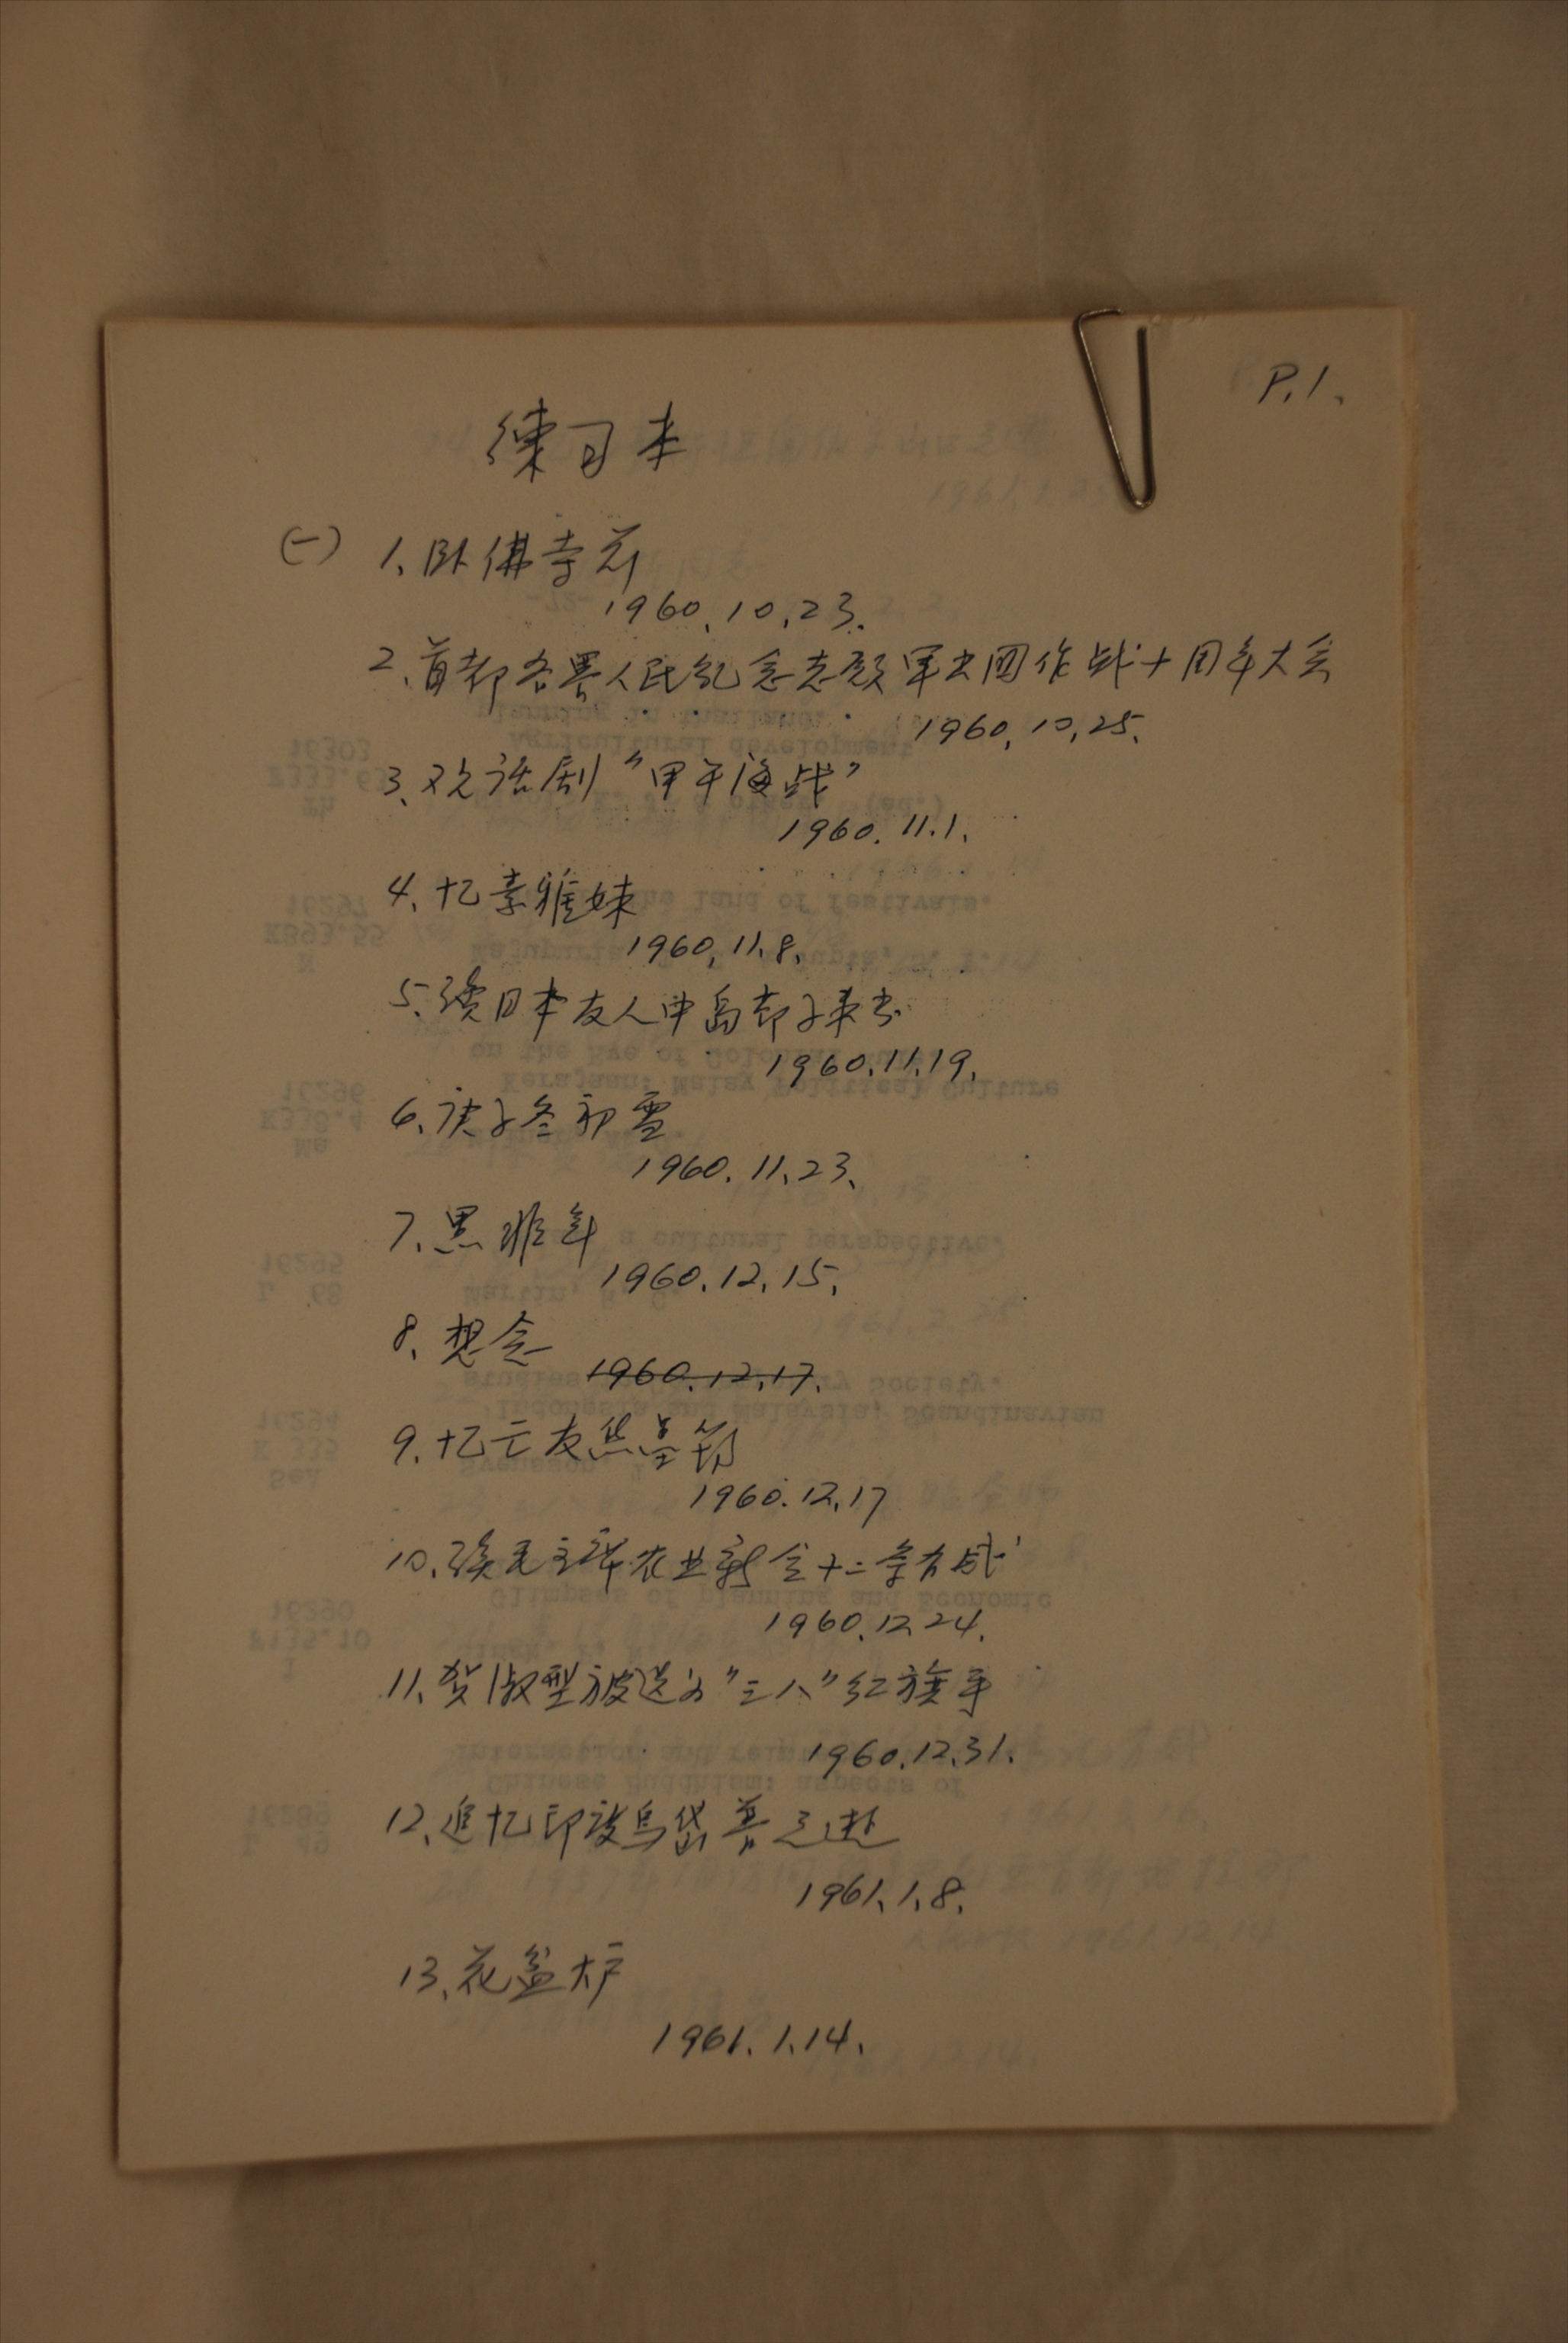 P.1.
练习本
(一) 1、卧佛寺前
1960.10.23.
2、首都各界人民纪念志愿军出国作战十周年大会
1960.10.25.
3、观话剧"甲午海战"
1960.11.1.
4、忆李雅妹
1960.11.8.
5、读日本友人中岛都子来书
1960.11.19.
6、庚子冬初雪
1960.11.23.
7、黑非年
1960.12.15.
8、想念
1960.12.17.
9、忆亡友熊
1960.12.17
10、农业新 十二条
1960.12.24.
11、贺淑型被选为"三八"红旗手
1960.12.31.
12、追忆印度乌岱普
1961.1.8.
13、花盆炉
1961.1.14.